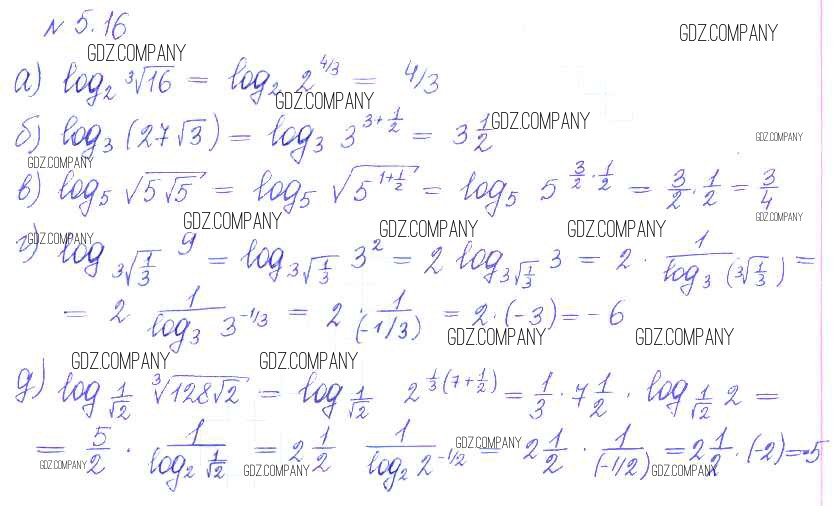 № 5.16
GDZ.COMPANY GDZ.COMPANY
а) log₂ ³√16 = log₂ 2^(4/3) = 4/3
GDZ.COMPANY
б) log₃ (27√3) = log₃ 3^(3+1/2) = 3 1/2 GDZ.COMPANY GDZ.COMPANY
GDZ.COMPANY
в) log₅ √(5√5) = log₅ √(5^(1+1/2)) = log₅ 5^(3/2·1/2) = 3/2 · 1/2 = 3/4
GDZ.COMPANY GDZ.COMPANY GDZ.COMPANY GDZ.COMPANY GDZ.COMPANY
г) log_(³√(1/3)) 9 = log_(³√(1/3)) 3² = 2 log_(³√(1/3)) 3 = 2 · 1/(log₃ (³√(1/3))) =
= 2 1/(log₃ 3^(-1/3)) = 2 · 1/(-1/3) = 2·(-3) = -6
GDZ.COMPANY GDZ.COMPANY
GDZ.COMPANY GDZ.COMPANY
д) log_(1/√2) ³√(128√2) = log_(1/√2) 2^(1/3(7+1/2)) = 1/3 · 7 1/2 · log_(1/√2) 2 =
= 5/2 · 1/(log₂ 1/√2) = 2 1/2 1/(log₂ 2^(-1/2)) = 2 1/2 · 1/(-1/2) = 2 1/2 · (-2) = -5
GDZ.COMPANY GDZ.COMPANY GDZ.COMPANY GDZ.COMPANY